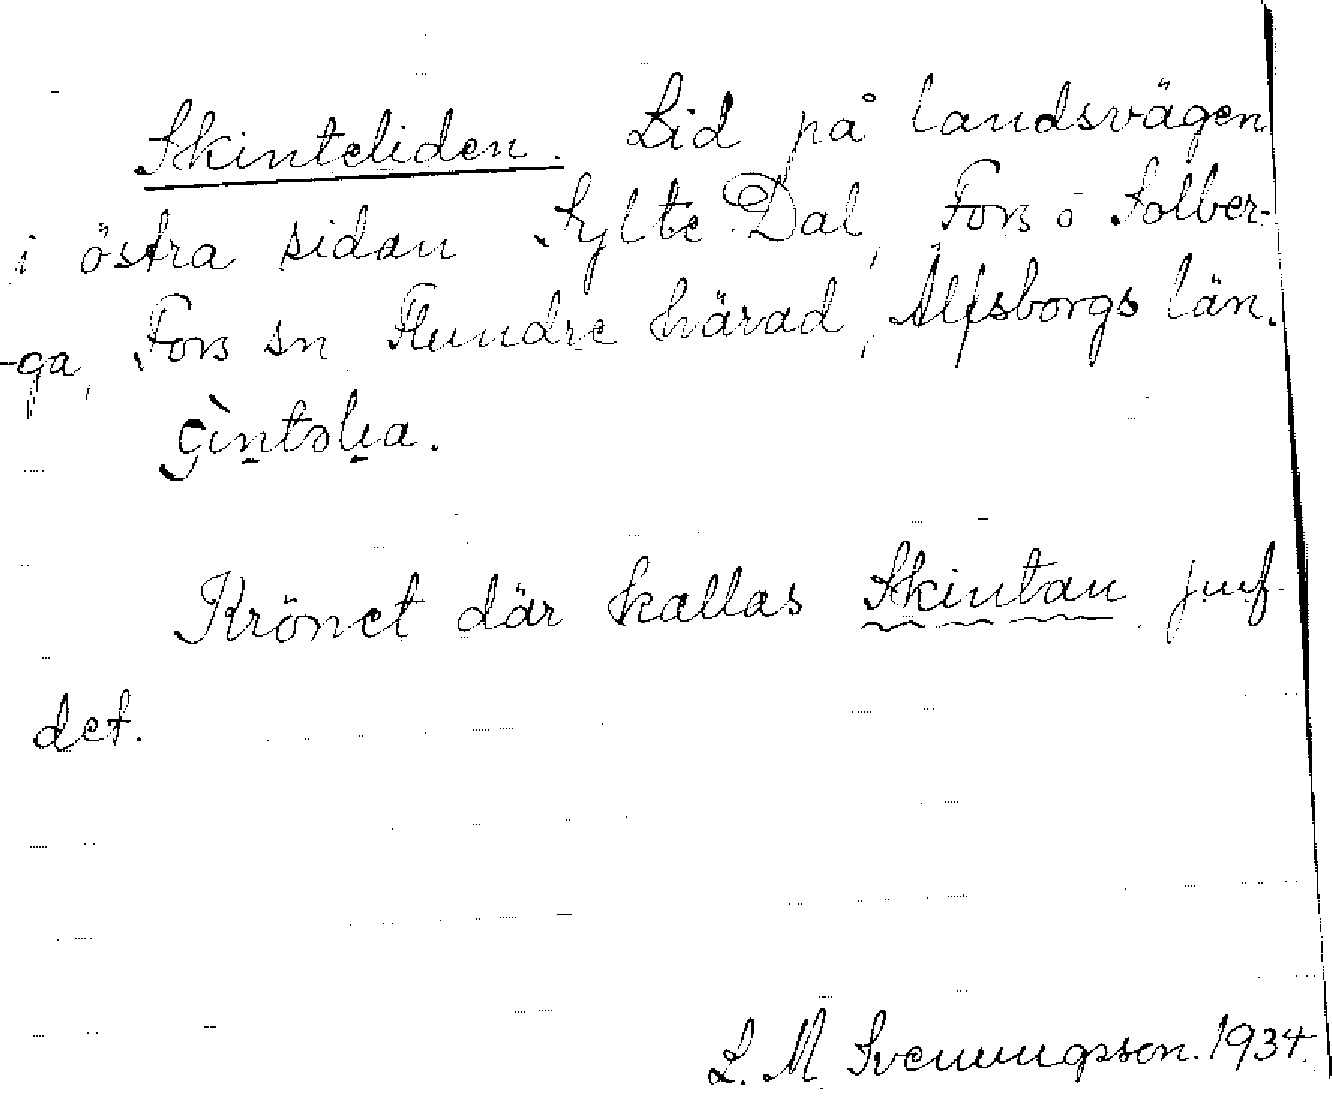 Skinteliden. Lid på landsvägen
i östra sidan Sylte Dal, Fors o Solber-
-ga, Fors sn Flundre härad, Älfsborgs län.
Krönet där kallas Skintan jmf
det.
L. M. Svenungsson. 1934.